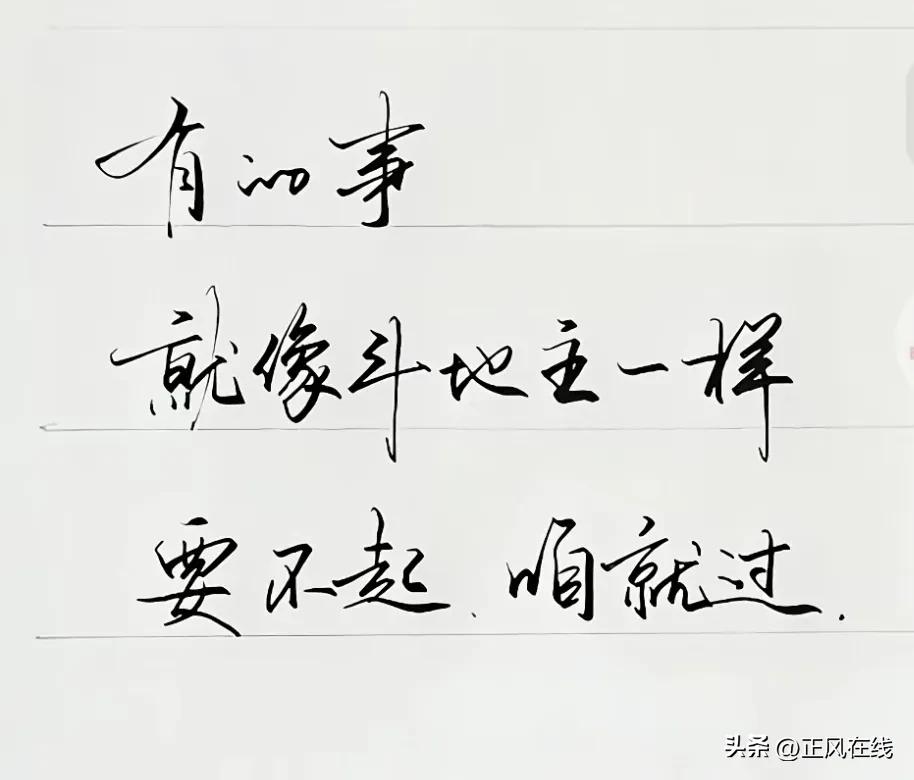 有的事
就像斗地主一样
要不起、咱就过.
头条 @正风在线